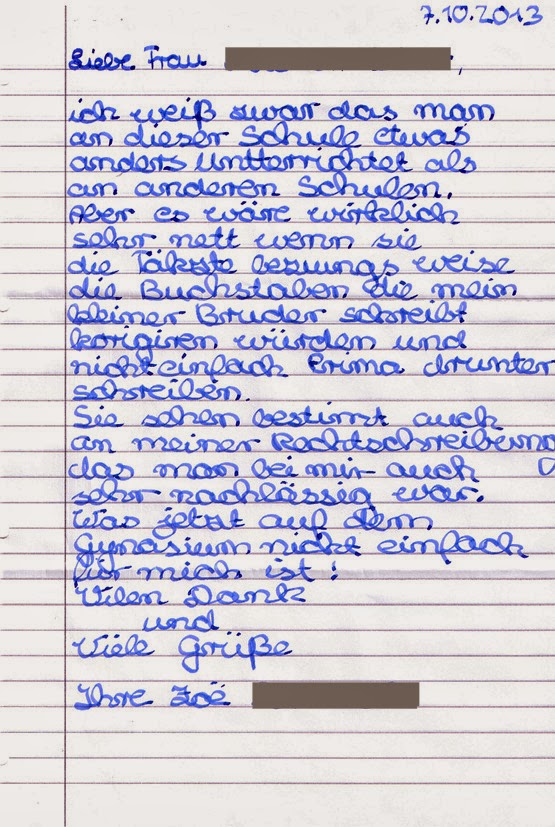 7.10.2013
Liebe Frau ,
ich weiß zwar das man
an dieser Schule etwas
anders untterrichtet als
an anderen Schulen.
Aber es wäre wirklich
sehr nett wenn sie
die Täkste bezuungs weise
die Buchstaben die mein
kleiner Bruder schreibt
korigiren würden und
nicht einfach Prima drunter
schreiben.
Sie sehen bestimt auch
an meiner Rechtschreibeung
das man bei mir auch
sehr nachlässig war.
Was jetzt auf dem
Gynasium nicht einfach
für mich ist!
Vilen Dank
und
Viele Grüße
Ihre Zoë